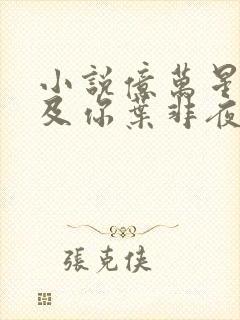 小說億萬星
及你葉非夜
張克俠